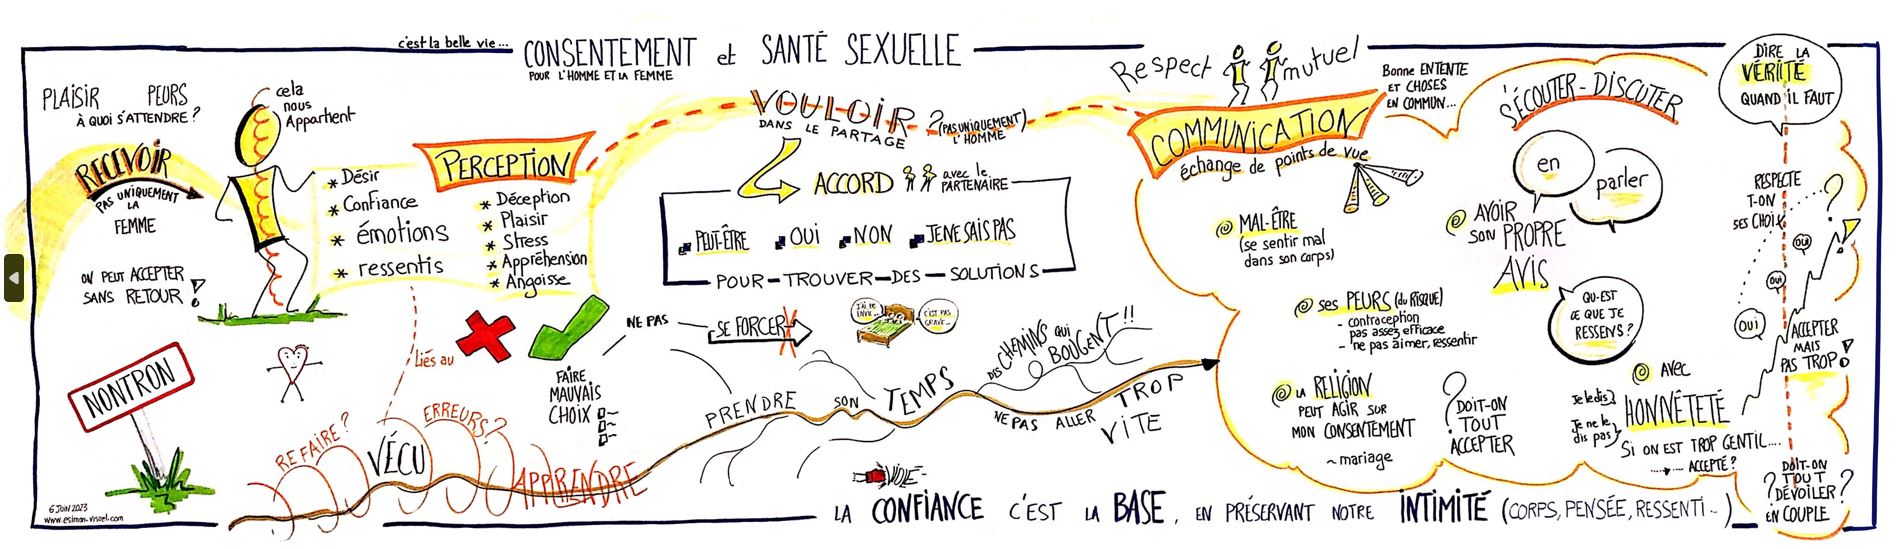 c'est la belle vie...
CONSENTEMENT et SANTÉ SEXUELLE
POUR L'HOMME ET LA FEMME
PLAISIR PEURS
À QUOI S'ATTENDRE ?
cela
nous
Appartient
RECEVOIR
PAS UNIQUEMENT
LA
FEMME
ON PEUT ACCEPTER
SANS RETOUR !
* Désir
* Confiance
* émotions
* ressentis
PERCEPTION
* Déception
* Plaisir
* Stress
* Appréhension
* Angoisse
liés au
NONTRON
6 JUIN 2023
www.esimon-visuel.com
REFAIRE ?
VÉCU
ERREURS ?
APPRENDRE
FAIRE
MAUVAIS
CHOIX
VOULOIR ? (PAS UNIQUEMENT
L'HOMME)
DANS LE PARTAGE
ACCORD avec le
PARTENAIRE
PEUT-ÊTRE OUI NON JE NE SAIS PAS
POUR-TROUVER-DES-SOLUTIONS
NE PAS SE FORCER
J'AI PAS
ENVIE...
C'EST PAS
GRAVE...
PRENDRE SON TEMPS
DES CHEMINS QUI
BOUGENT !!
NE PAS ALLER TROP
VITE
Respect mutuel
Bonne ENTENTE
ET CHOSES
EN COMMUN...
COMMUNICATION
échange de points de vue
MAL-ÊTRE
(se sentir mal
dans son corps)
ses PEURS (du RISQUE)
- contraception
pas assez efficace
- ne pas aimer, ressentir
LA RELIGION
PEUT AGIR SUR
MON CONSENTEMENT
~ mariage
? DOIT-ON
TOUT
ACCEPTER
S'ÉCOUTER - DISCUTER
en
parler
AVOIR
SON PROPRE
AVIS
QU-EST
CE QUE JE
RESSENS ?
AVEC
HONNÊTETÉ
Je le dis
Je ne le
dis pas
SI ON EST TROP GENTIL....
ACCEPTÉ ?
DIRE LA
VÉRIITÉ
QUAND IL FAUT
RESPECTE
T-ON
SES CHOIX
?
OUI
OUI
OUI
ACCEPTER
MAIS
PAS TROP !
DOIT-ON
? TOUT ?
DÉVOILER
EN COUPLE
LA CONFIANCE C'EST LA BASE, EN PRÉSERVANT NOTRE INTIMITÉ (CORPS, PENSÉE, RESSENTI...)